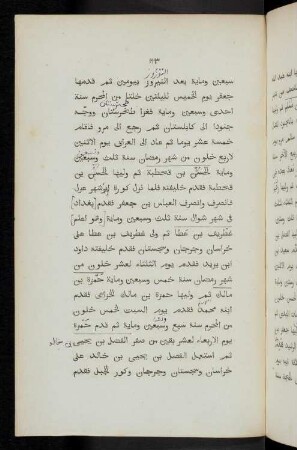 ١٣
النوروز
سبعين وماية بعد النيروز بيومين ثم قدمها
جعفر يوم الخميس لليلتين خلتا من المحرم سنة
احدى وسبعين وماية فغزا طخرستان ووجّه
جنودا الى كابلستان ثم رجع الى مرو فاقام
خمسة عشر يوما ثم عاد الى العراق يوم الاثنين
لاربع خلون من شهر رمضان سنة ثلث وسبعين
وماية ثم وليها الحسن بن
قحطبة فقدم خليفته فلما نزل كورة شهر عزل
فانصرف وانصرف العباس بن جعفر فقدم [بغداد]
فى شهر شوال سنة ثلث وسبعين وماية [وهو اعلم]
غطريف بن عطا ثم ولى غطريف بن عطا على
خراسان وجرجان وسجستان فقدم خليفته داود
بن يزيد فقدم يوم الثلثاء لعشر خلون من
شهر رمضان سنة خمس وسبعين وماية حمزة بن
مالك ثم وليها حمزة بن مالك الخزاعى فقدم
ابنه محمد فقدم يوم السبت لخمس خلون
من المحرم سنة سبع وسبعين وماية ثم قدم حمزة
يوم الاربعاء لعشر بقين من صفر الفضل بن يحيى بن خالد
ثم استعمل الفضل بن يحيى بن خالد على
خراسان وسجستان وجرجان وكور الجبل فقدم